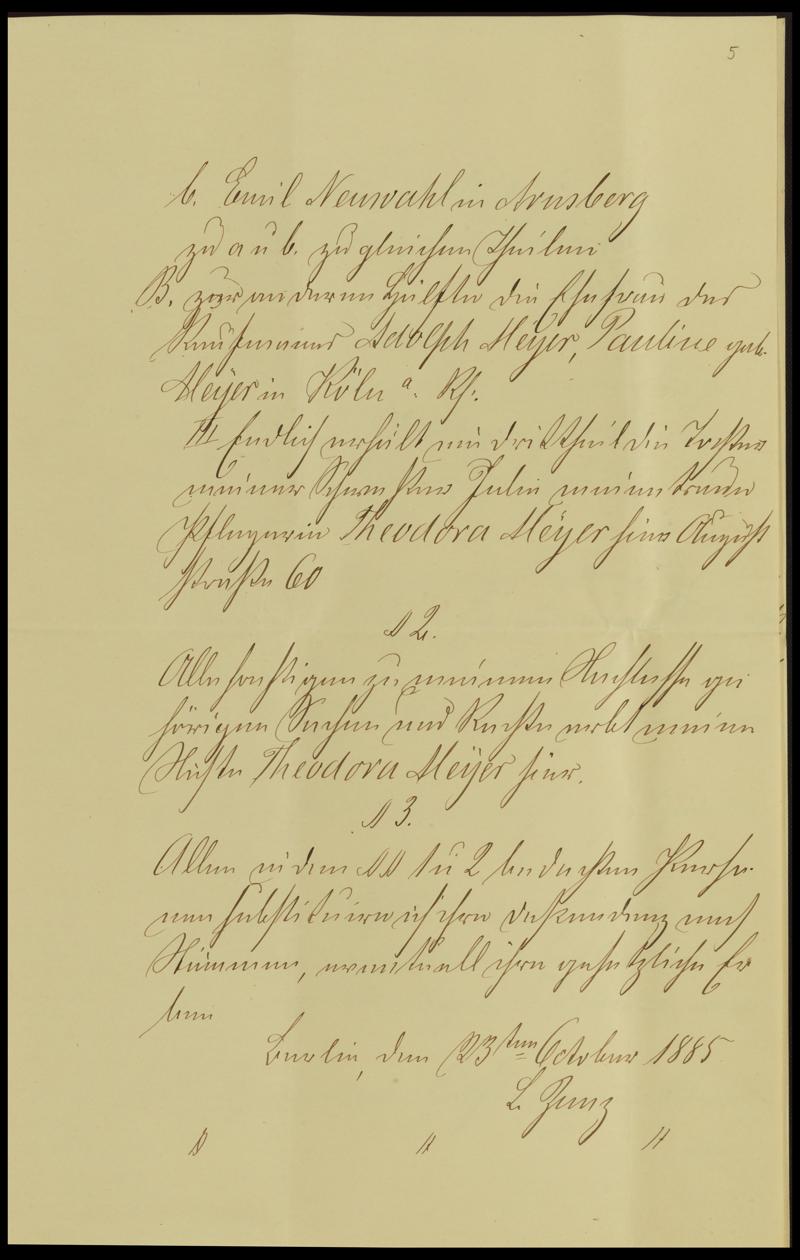 5
b. Emil Neuwahl in Arnsberg
zu a u b. zu gleichen Theilen
B. zur anderen Hälfte die Ehefrau des
Kaufmanns Adolph Meyer, Pauline geb.
Meyer in Köln a. Rh.
III Endlich erhält ein Drittheil die Tochter
meiner Schwester Julie meine treue
Pflegerin Theodora Meyer hier August
straße 60
§ 2.
Alle sonstigen zu meinem Nachlasse ge
hörigen Sachen und Rechte erbt meine
Nichte Theodora Meyer hier.
§ 3.
Allen in den §§ 1 u 2 bedachten Perso-
nen substituire ich ihre Deszendenz nach
Stämmen, eventuell ihre gesetzliche Er
ben
Berlin, den 23ten October 1885
L. Zunz